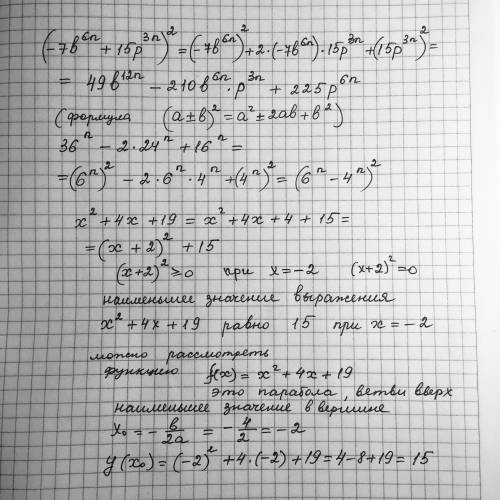 (-7b⁶ⁿ + 15p³ⁿ)² = (-7b⁶ⁿ)² + 2·(-7b⁶ⁿ)·15p³ⁿ + (15p³ⁿ)² =
= 49b¹²ⁿ - 210b⁶ⁿ·p³ⁿ + 225p⁶ⁿ
(формула (a±b)² = a² ± 2ab + b²)
36ⁿ - 2·24ⁿ + 16ⁿ =
= (6ⁿ)² - 2·6ⁿ·4ⁿ + (4ⁿ)² = (6ⁿ - 4ⁿ)²
x² + 4x + 19 = x² + 4x + 4 + 15 =
= (x + 2)² + 15
(x+2)² ≥ 0 при x = -2 (x+2)² = 0
наименьшее значение выражения
x² + 4x + 19 равно 15 при x = -2
можно рассмотреть
функцию f(x) = x² + 4x + 19
это парабола, ветви вверх
наименьшее значение в вершине
x₀ = -b/2a = -4/2 = -2
y(x₀) = (-2)² + 4·(-2) + 19 = 4 - 8 + 19 = 15